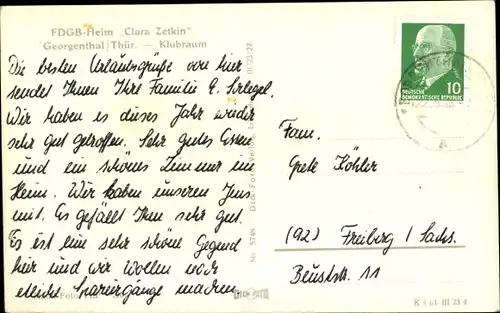 FDGB-Heim „Clara Zetkin"
Georgenthal/Thür. — Klubraum
Die besten Urlaubsgrüße von hier
sendet Ihnen Ihre Familie E.
Wir haben es dieses Jahr wieder
sehr gut getroffen. Sehr gutes Essen
und ein schönes Zimmer im
Heim. Wir haben unseren Jens
mit. Es gefällt Ihm sehr gut.
Es ist eine sehr schöne Gegend
hier und wir wollen noch
etliche Spaziergänge machen.
III 23 27
Nr. 5748
10
DEUTSCHE
DEMOKRATISCHE REPUBLIK
Fam.
Grete Köhler
(92) Freiberg / Sachs.
Beuststr. 11
K 1 61 III 23 4